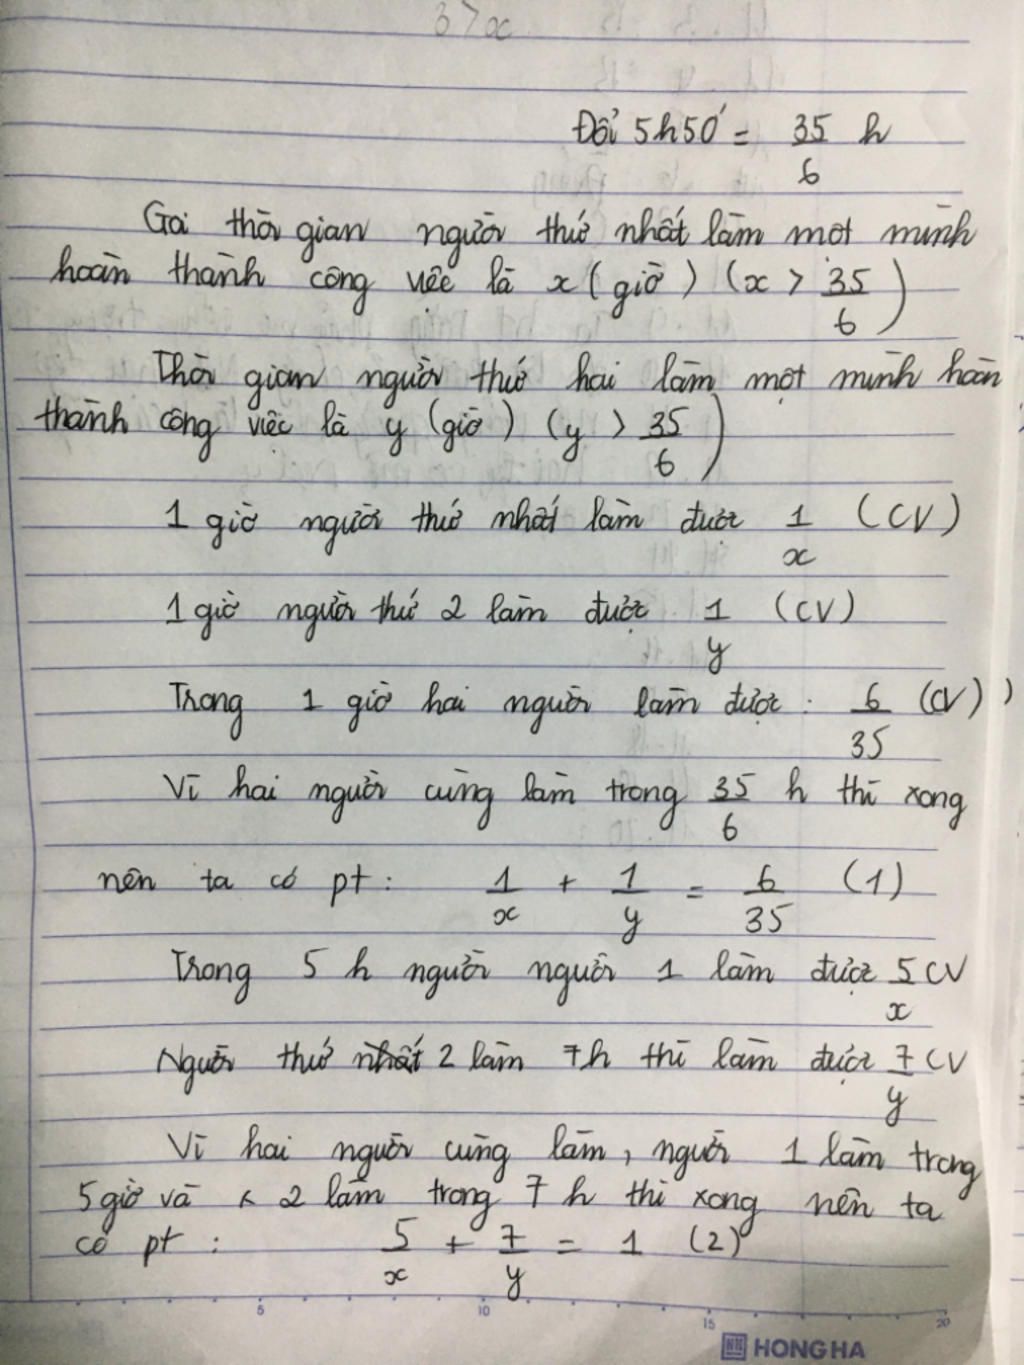 37x
Đổi 5h50' = 35/6 h
Gọi thời gian người thứ nhất làm một mình
hoàn thành công việc là x (giờ) (x > 35/6)
Thời gian người thứ hai làm một mình hoàn
thành công việc là y (giờ) (y > 35/6)
1 giờ người thứ nhất làm được 1/x (CV)
1 giờ người thứ 2 làm được 1/y (CV)
Trong 1 giờ hai người làm được : 6/35 (CV)
Vì hai người cùng làm trong 35/6 h thì xong
nên ta có pt : 1/x + 1/y = 6/35 (1)
Trong 5 h người người 1 làm được 5/x CV
Người thứ 2 làm 7h thì làm được 7/y CV
Vì hai người cùng làm, người 1 làm trong
5 giờ và 2 làm trong 7 h thì xong nên ta
có pt : 5/x + 7/y = 1 (2)
5 10 15 20
HONG HA